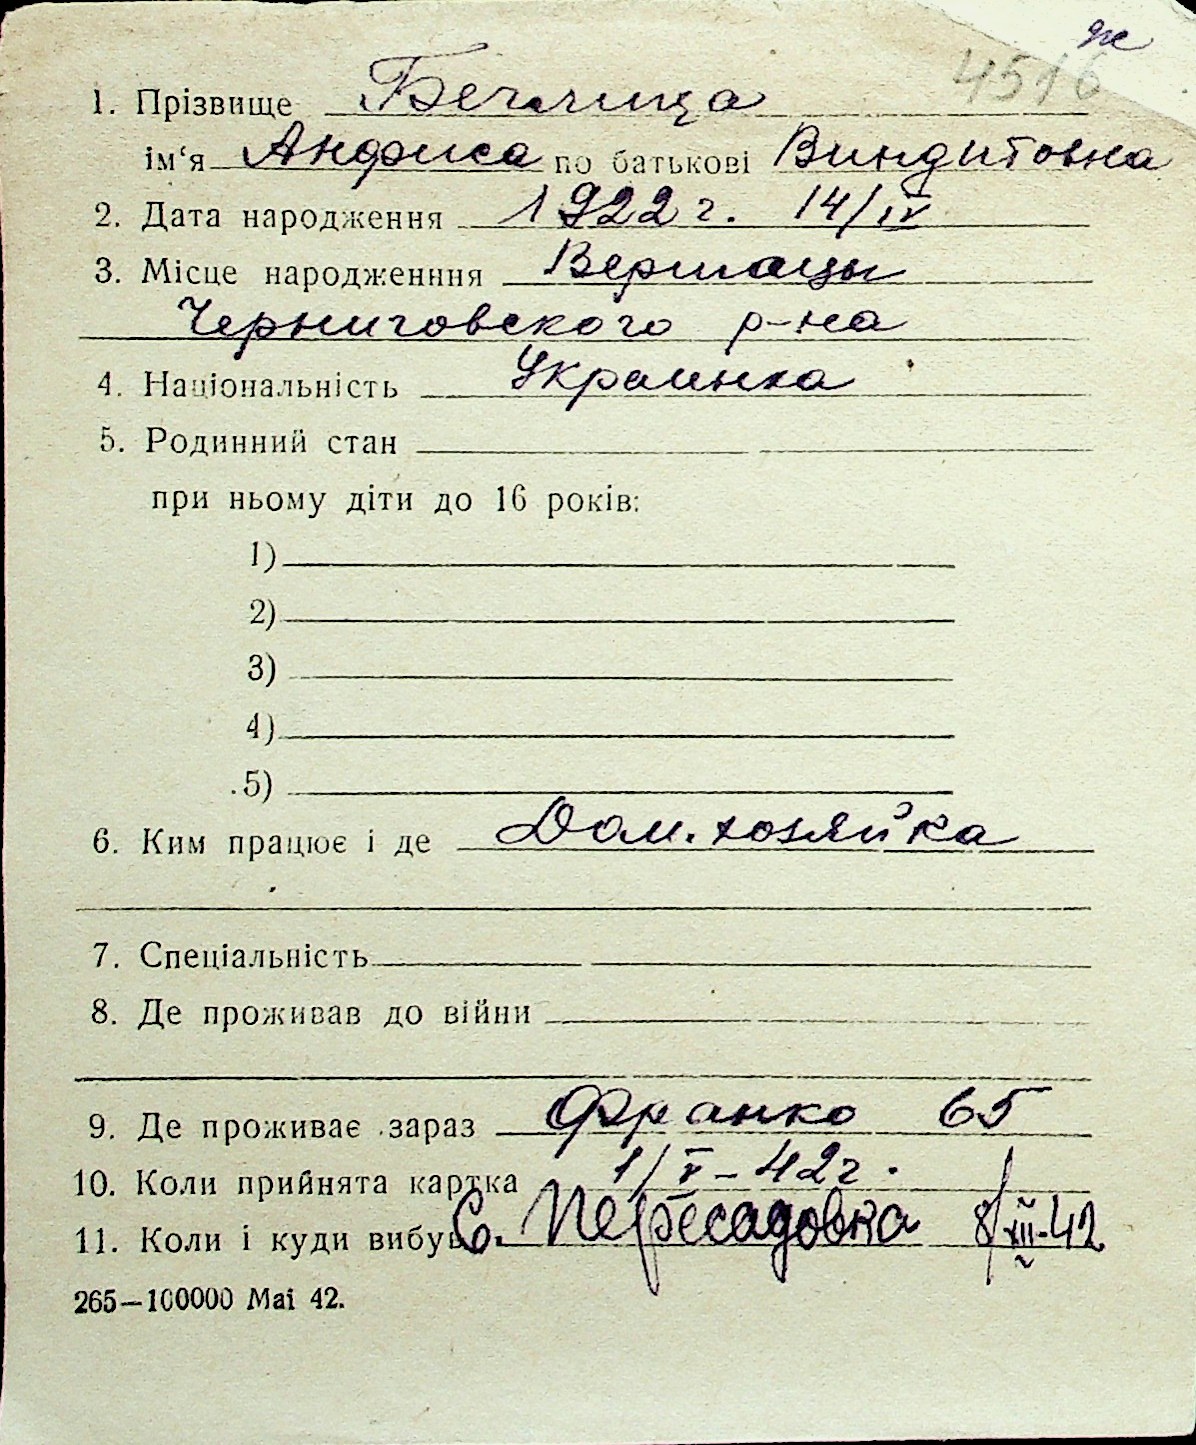 4516
1. Прізвище
ім‘я Анфиса по батькові
2. Дата народження 1922 г. 14/IV
3. Місце народженння
Черниговского р-на
4. Національність Украинка
5. Родинний стан
при ньому діти до 16 років:
1)
2)
3)
4)
5)
6. Ким працює і де Дом. хозяйка
7. Спеціальність
8. Де проживав до війни
9. Де проживає зараз Франко 65
10. Коли прийнята картка 1/V-42г.
11. Коли і куди вибув С. Пересадовка 8/XII-42
265—100000 Mai 42.